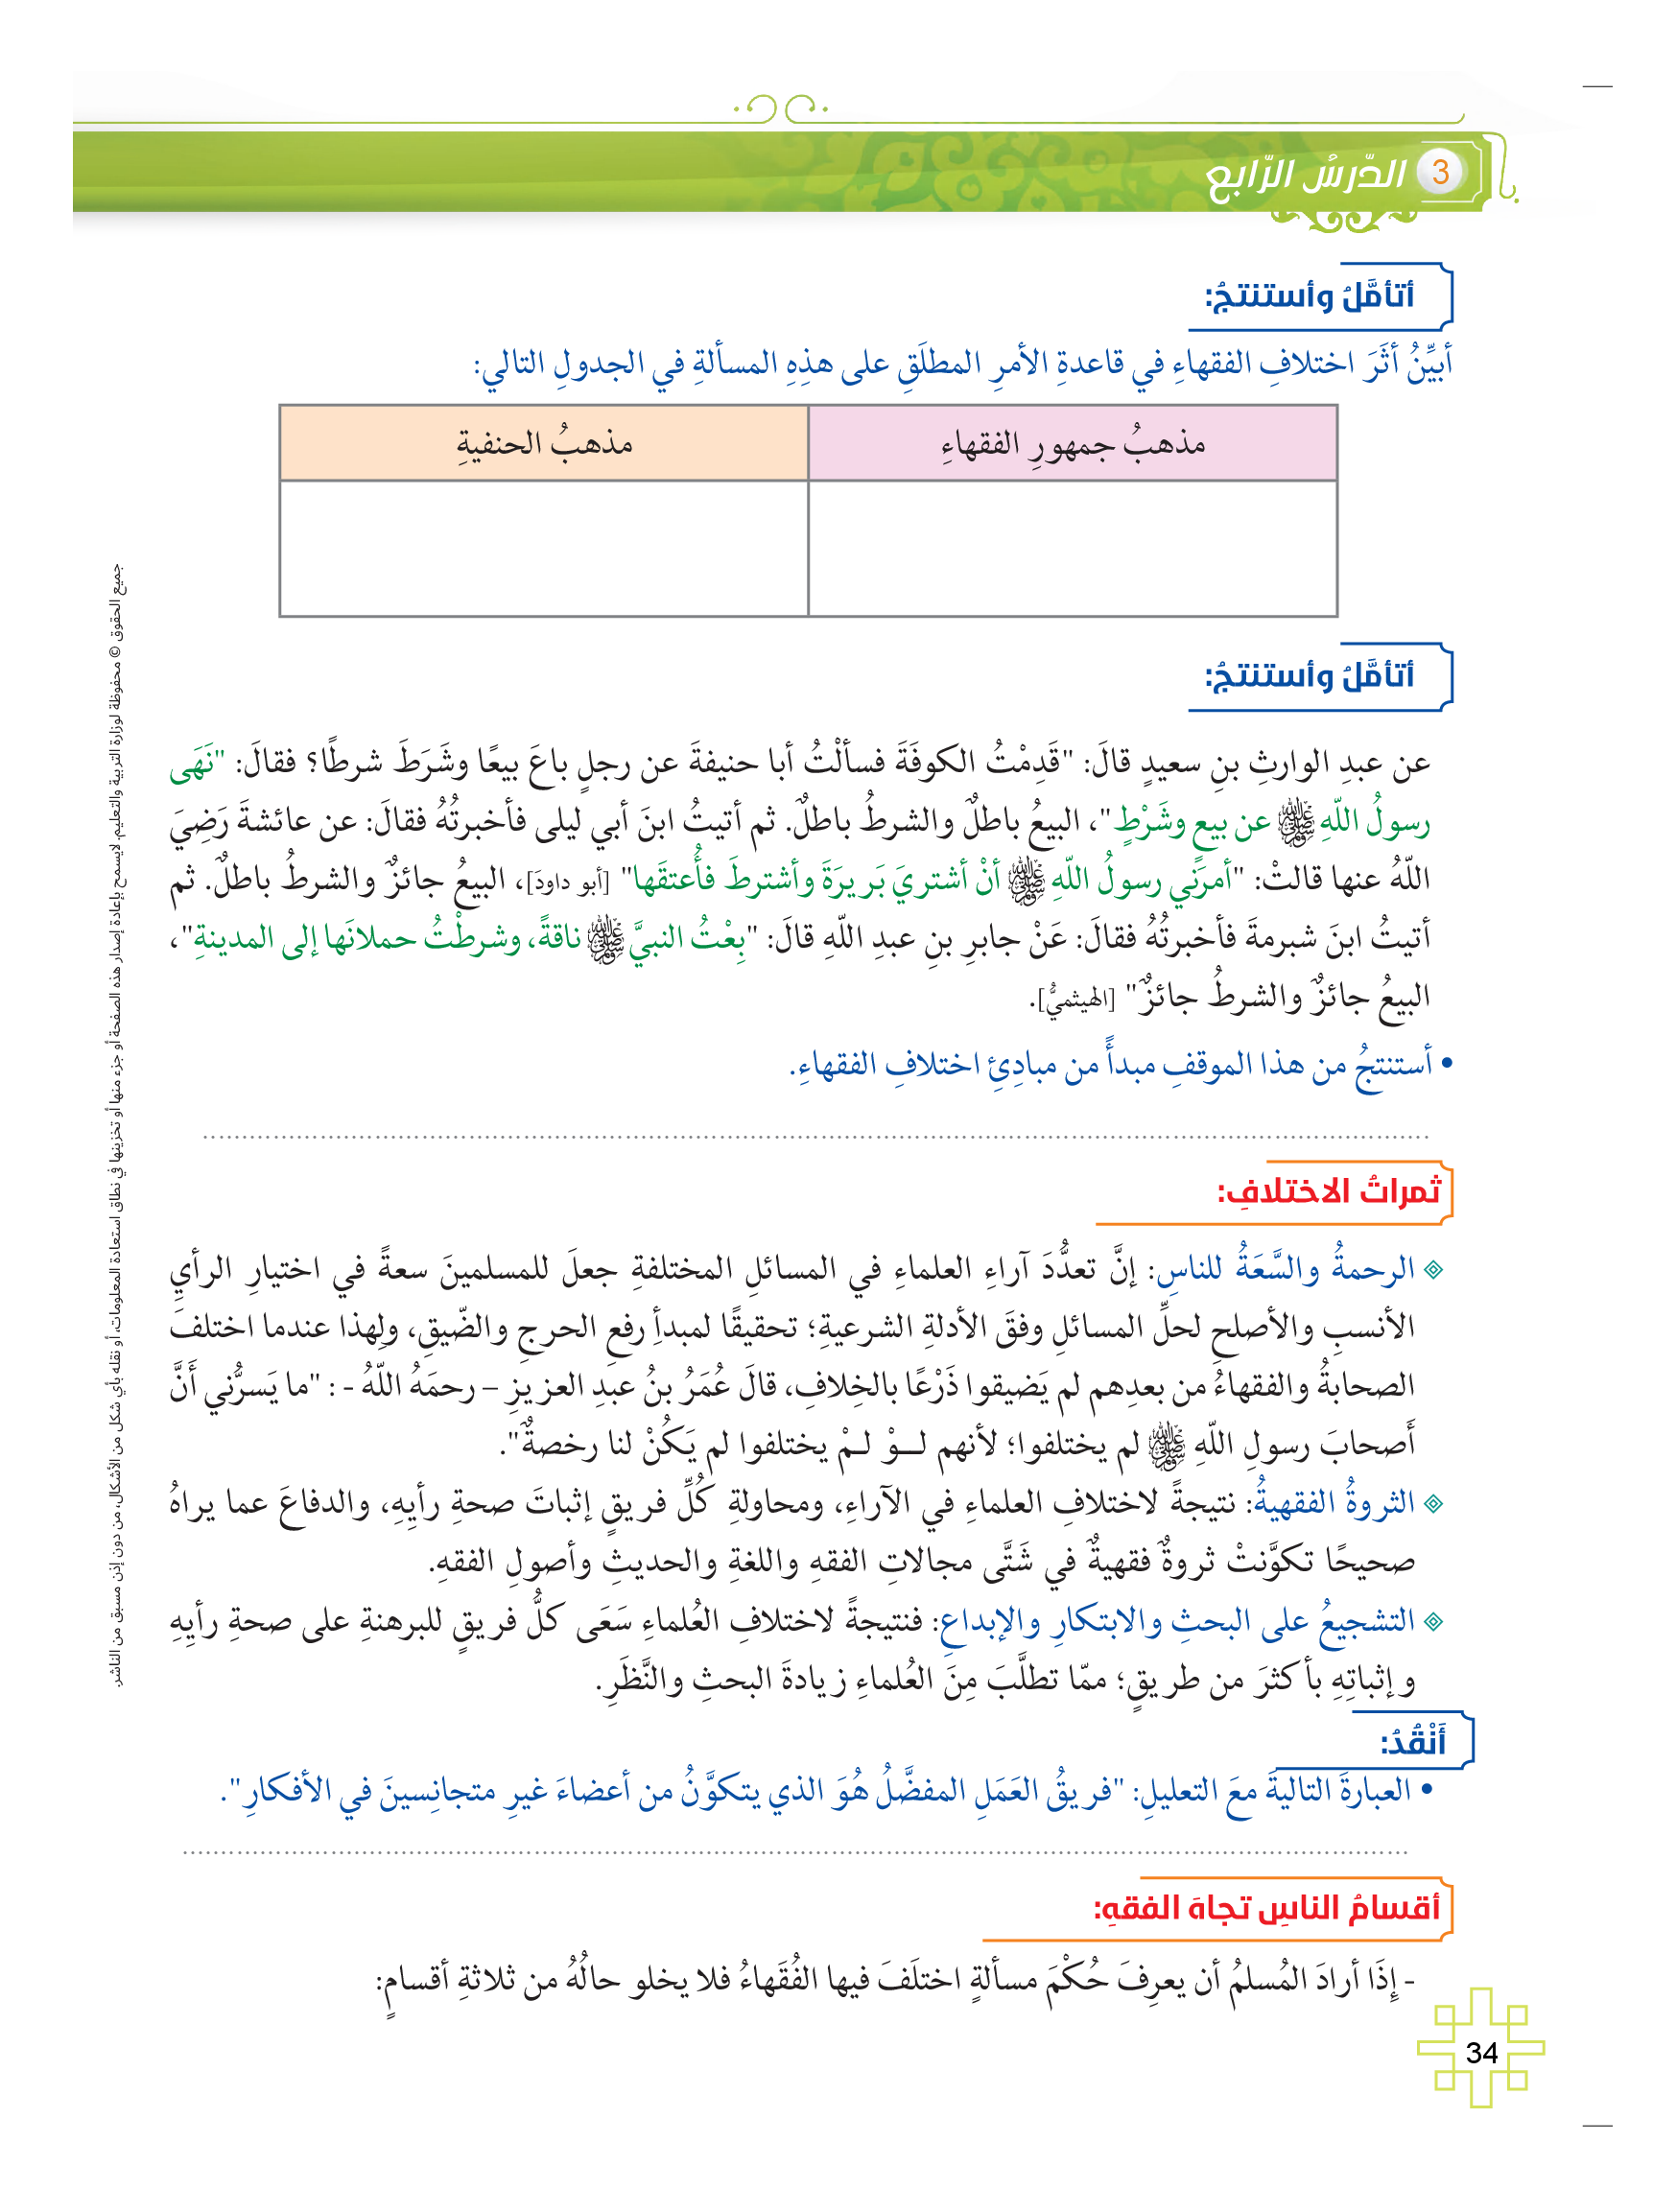 3 الدّرسُ الرّابع
أتأمَّلُ وأستنتجُ:
أبيِّنُ أثَرَ اختلافِ الفقهاءِ في قاعدةِ الأمرِ المطلَقِ على هذِهِ المسألةِ في الجدولِ التالي:
مذهبُ جمهورِ الفقهاءِ
مذهبُ الحنفيةِ
أتأمَّلُ وأستنتجُ:
عن عبدِ الوارثِ بنِ سعيدٍ قالَ: "قَدِمْتُ الكوفَةَ فسألْتُ أبا حنيفةَ عن رجلٍ باعَ بيعًا وشَرَطَ شرطًا؟ فقالَ: "نَهَى
رسولُ اللّهِ ﷺ عن بيعٍ وشَرْطٍ"، البيعُ باطلٌ والشرطُ باطلٌ. ثم أتيتُ ابنَ أبي ليلى فأخبرتُهُ فقالَ: عن عائشةَ رَضِيَ
اللّهُ عنها قالتْ: "أمرَني رسولُ اللّهِ ﷺ أنْ أشتريَ بَريرَةَ وأشترطَ فأُعتقَها" [أبو داودَ]، البيعُ جائزٌ والشرطُ باطلٌ. ثم
أتيتُ ابنَ شبرمةَ فأخبرتُهُ فقالَ: عَنْ جابرِ بنِ عبدِ اللّهِ قالَ: "بِعْتُ النبيَّ ﷺ ناقةً، وشرطْتُ حملانَها إلى المدينةِ"،
البيعُ جائزٌ والشرطُ جائزٌ" [الهيثميُّ].
• أستنتجُ من هذا الموقفِ مبدأً من مبادِئِ اختلافِ الفقهاءِ.
ثمراتُ الاختلافِ:
الرحمةُ والسَّعَةُ للناسِ: إنَّ تعدُّدَ آراءِ العلماءِ في المسائلِ المختلفةِ جعلَ للمسلمينَ سعةً في اختيارِ الرأيِ
الأنسبِ والأصلحِ لحلِّ المسائلِ وفقَ الأدلةِ الشرعيةِ؛ تحقيقًا لمبدأِ رفعِ الحرجِ والضّيقِ، ولِهذا عندما اختلفَ
الصحابةُ والفقهاءُ من بعدِهم لم يَضيقوا ذَرْعًا بالخِلافِ، قالَ عُمَرُ بنُ عبدِ العزيزِ – رحمَهُ اللّهُ - : "ما يَسرُّني أَنَّ
أَصحابَ رسولِ اللّهِ ﷺ لم يختلفوا؛ لأنهم لــوْ لـمْ يختلفوا لم يَكُنْ لنا رخصةٌ".
الثروةُ الفقهيةُ: نتيجةً لاختلافِ العلماءِ في الآراءِ، ومحاولةِ كُلِّ فريقٍ إثباتَ صحةِ رأيِهِ، والدفاعَ عما يراهُ
صحيحًا تكوَّنتْ ثروةٌ فقهيةٌ في شَتَّى مجالاتِ الفقهِ واللغةِ والحديثِ وأصولِ الفقهِ.
التشجيعُ على البحثِ والابتكارِ والإبداعِ: فنتيجةً لاختلافِ العُلماءِ سَعَى كلُّ فريقٍ للبرهنةِ على صحةِ رأيِهِ
وإثباتِهِ بأكثرَ من طريقٍ؛ ممّا تطلَّبَ مِنَ العُلماءِ زيادةَ البحثِ والنَّظَرِ.
أَنْقُدُ:
• العبارةَ التاليةَ معَ التعليلِ: "فريقُ العَمَلِ المفضَّلُ هُوَ الذي يتكوَّنُ من أعضاءَ غيرِ متجانِسينَ في الأفكارِ".
أقسامُ الناسِ تجاهَ الفقهِ:
- إذَا أرادَ المُسلمُ أن يعرِفَ حُكْمَ مسألةٍ اختلَفَ فيها الفُقَهاءُ فلا يخلو حالُهُ من ثلاثةِ أقسامٍ:
34
جميع الحقوق © محفوظة لوزارة التربية والتعليم. لايسمح بإعادة إصدار هذه الصفحة أو جزء منها أو تخزينها في نطاق استعادة المعلومات، أو نقله بأي شكل من الأشكال، من دون إذن مسبق من الناشر.